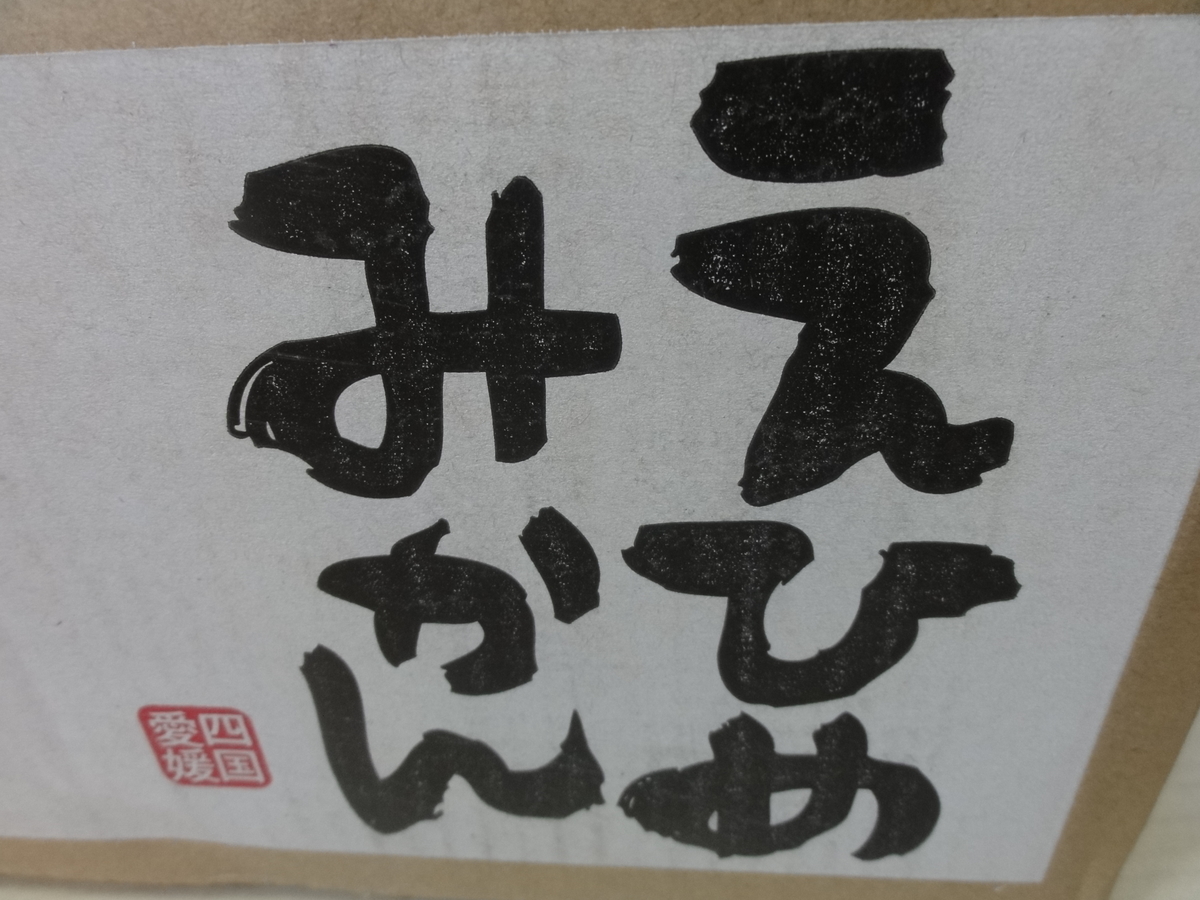 えひめ
みかん
四国
愛媛